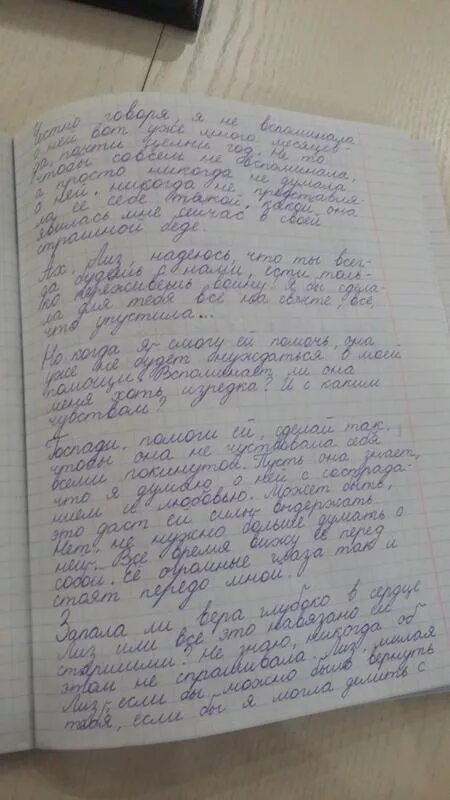 Честно говоря, я не вспоминала
о ней вот уже много месяцев -
да, почти целый год. Не то
чтобы совсем не вспоминала,
а просто никогда не думала
о ней, никогда не представля-
ла ее себе такой, какой она
явилась мне сейчас в своей
страшной беде.
Ах, Лиз, надеюсь, что ты всег-
да будешь с нами, если толь-
ко переживешь войну! Я бы сдела-
ла для тебя всё на свете, все,
что упустила...
Но когда я смогу ей помочь, она
уже не будет нуждаться в моей
помощи. Вспоминает ли она
меня хоть изредка? И с каким
чувством?
Господи, помоги ей, сделай так,
чтобы она не чувствовала себя
всеми покинутой. Пусть она знает,
что я думаю о ней с сострада-
нием и любовью. Может быть,
это даст ей силы выдержать.
Нет, не нужно больше думать о
ней. Всё время вижу её перед
собой. Её огромные глаза так и
стоят передо мной.
3
Запала ли вера глубоко в сердце
Лиз или все это навязано ей
старшими? Не знаю, никогда об
этом не спрашивала. Лиз, милая
Лиз, если бы можно было вернуть
тебя, если бы я могла делить с